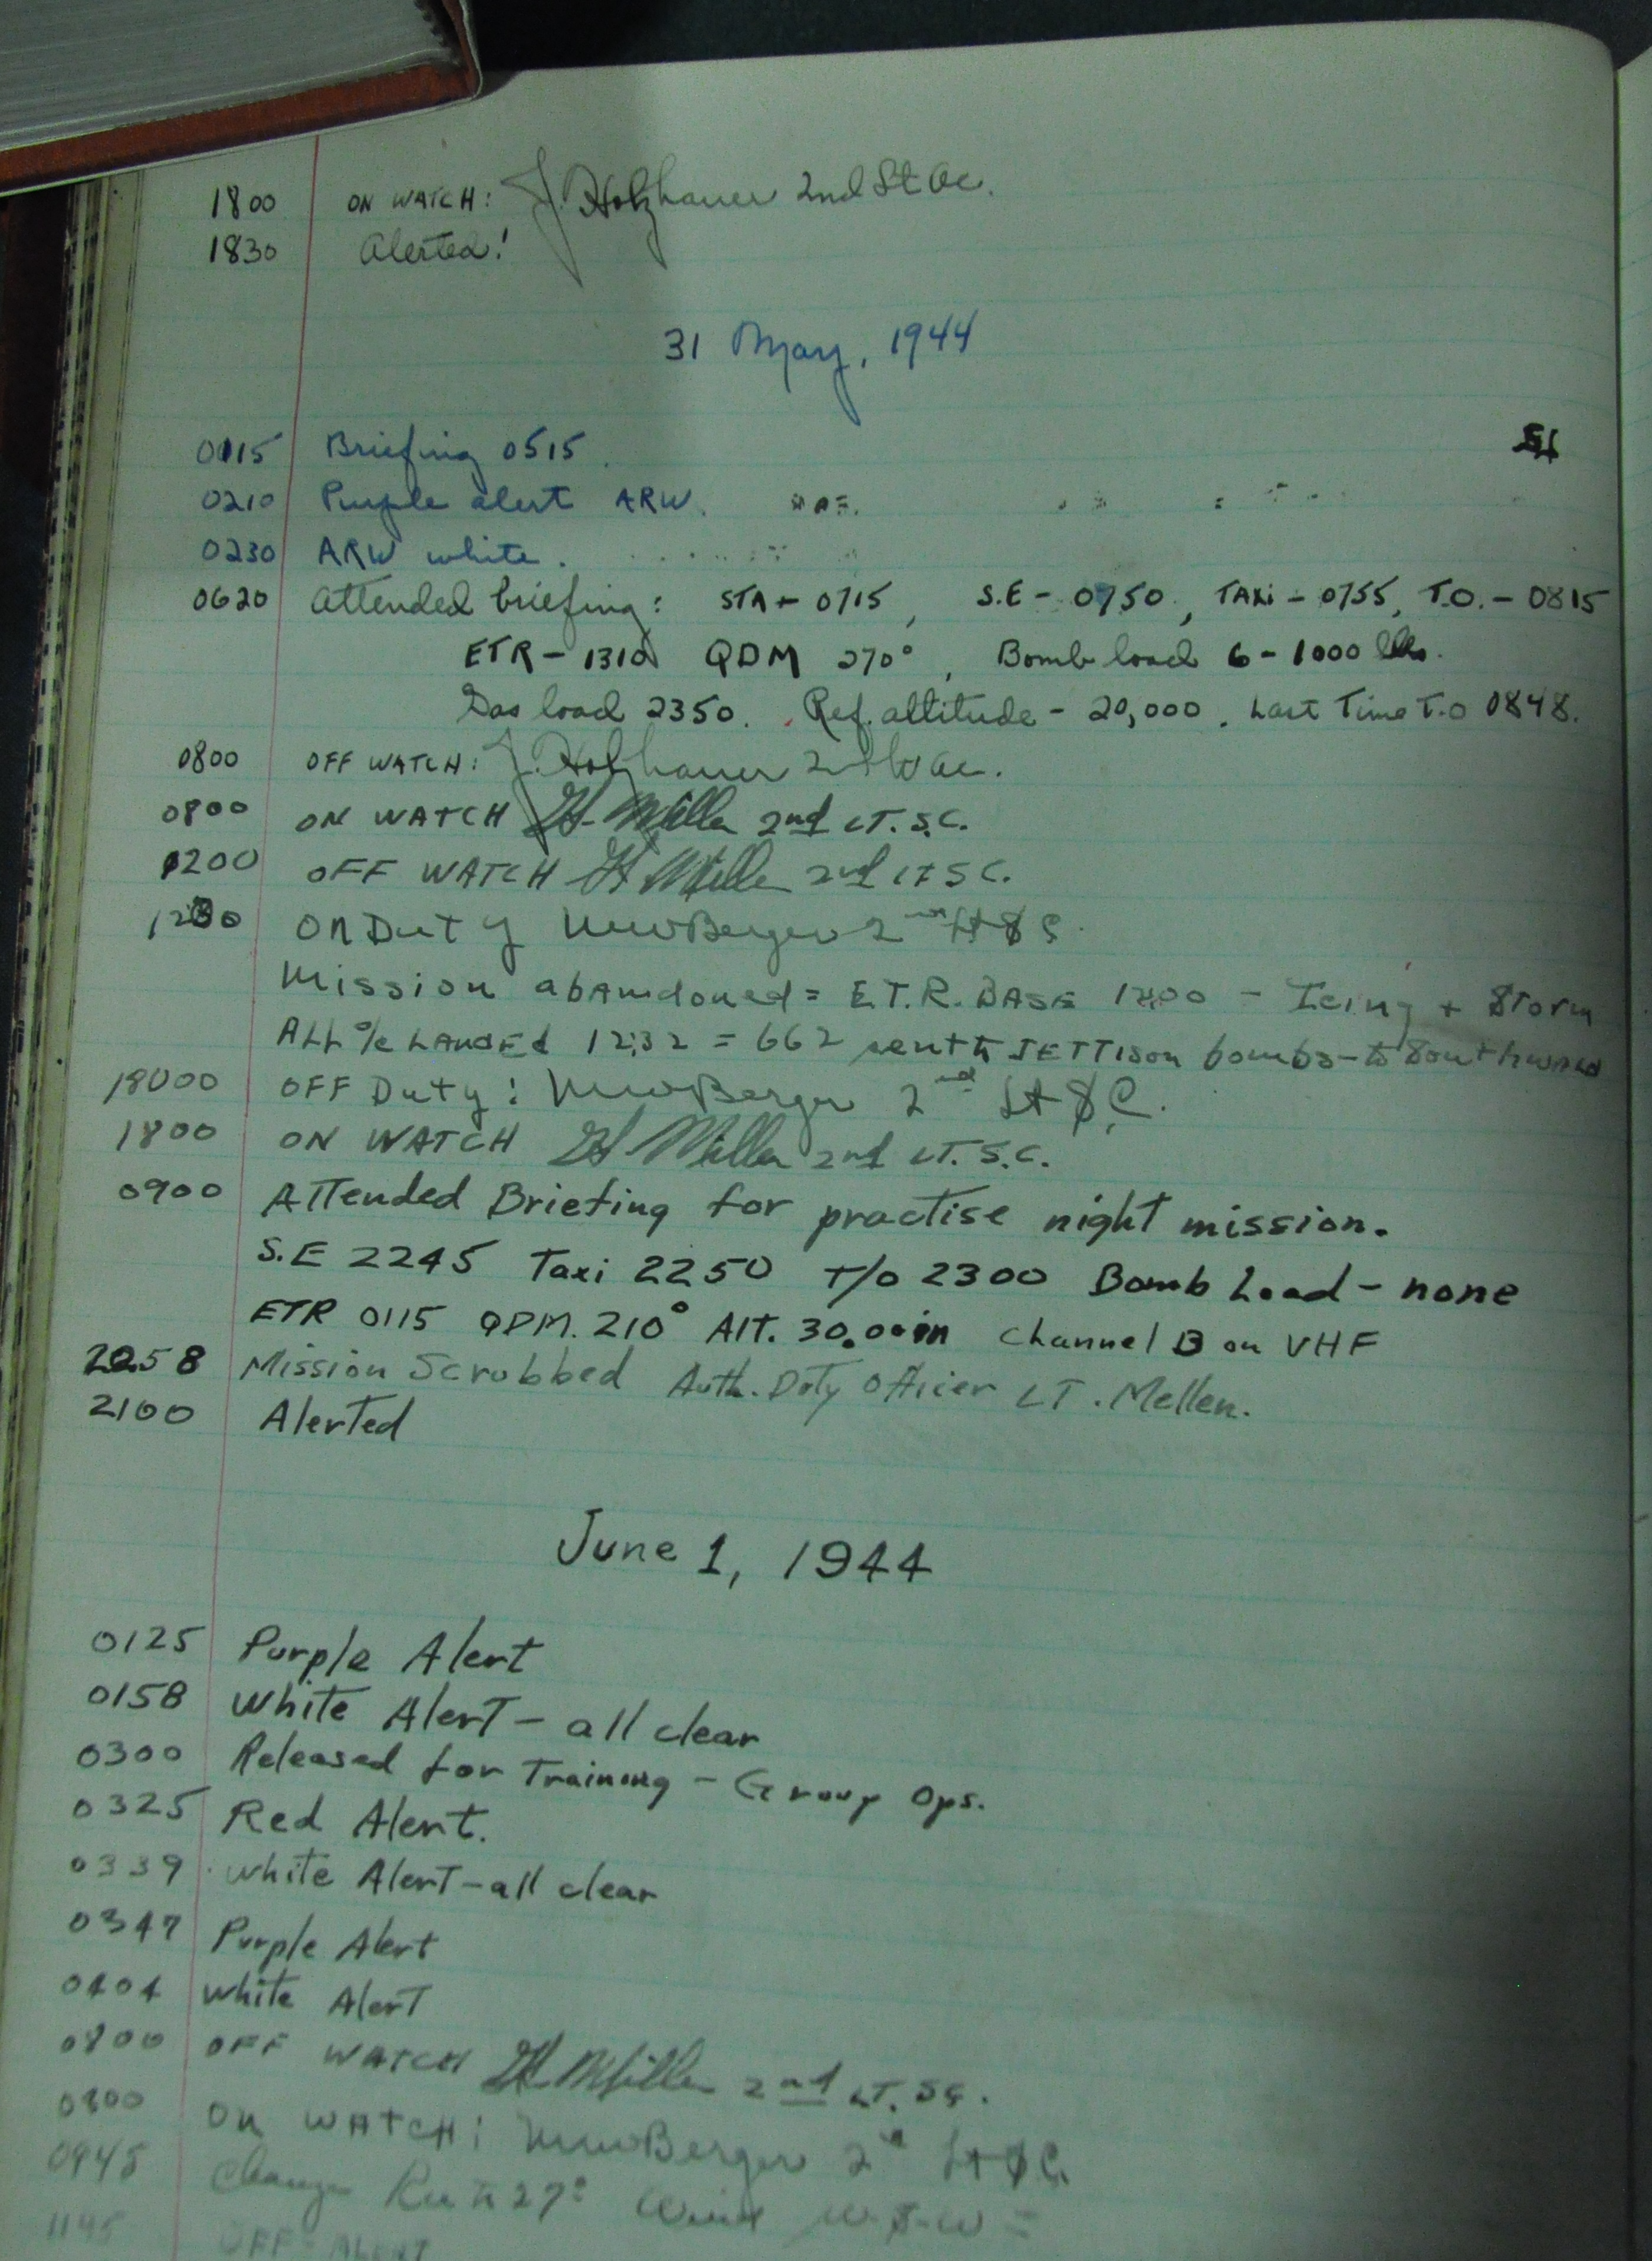 1800 ON WATCH: J. Holzhauer 2nd Lt ac.
1830 Alerted!
31 May, 1944
0115 Briefing 0515.
0210 Purple alert ARW.
0230 ARW white.
0620 Attended briefing: STA - 0715, S.E - 0750, TAXi - 0755, T.O. - 0815
ETR - 1310 QDM 270°, Bomb load 6 - 1000 lbs.
Gas load 2350. Ref. altitude - 20,000. Last Time T.O 0848.
0800 OFF WATCH: J. Holzhauer 2nd Lt ac.
0800 ON WATCH H Miller 2nd LT. S.C.
1200 OFF WATCH H Miller 2nd LT SC.
1230 ON Duty Berger 2nd Lt SC
Mission abandoned = E.T.R. BASE - Icing + Storm
ALL LANDEd 1232 = 662 sent to JETTison bombs - to
18000 OFF Duty: Berger 2nd Lt SC.
1800 ON WATCH H Miller 2nd LT. S.C.
0900 Attended Briefing for practise night mission.
S.E 2245 Taxi 2250 T/O 2300 Bomb Load - none
ETR 0115 QDM. 210° Alt. 30.00 in Channel B on VHF
2258 Mission Scrubbed Auth. Duty Officer LT. Mellen.
2100 Alerted
June 1, 1944
0125 Purple Alert
0158 White Alert - all clear
0300 Released for Training - Group Ops.
0325 Red Alert.
0339 White Alert - all clear
0347 Purple Alert
0404 White Alert
0800 OFF WATCH H Miller 2nd LT. SC.
0800 ON WATCH: Berger 2nd Lt SC.
0945 Change 27° Wind W.S.W =
1145 OFF ALERT